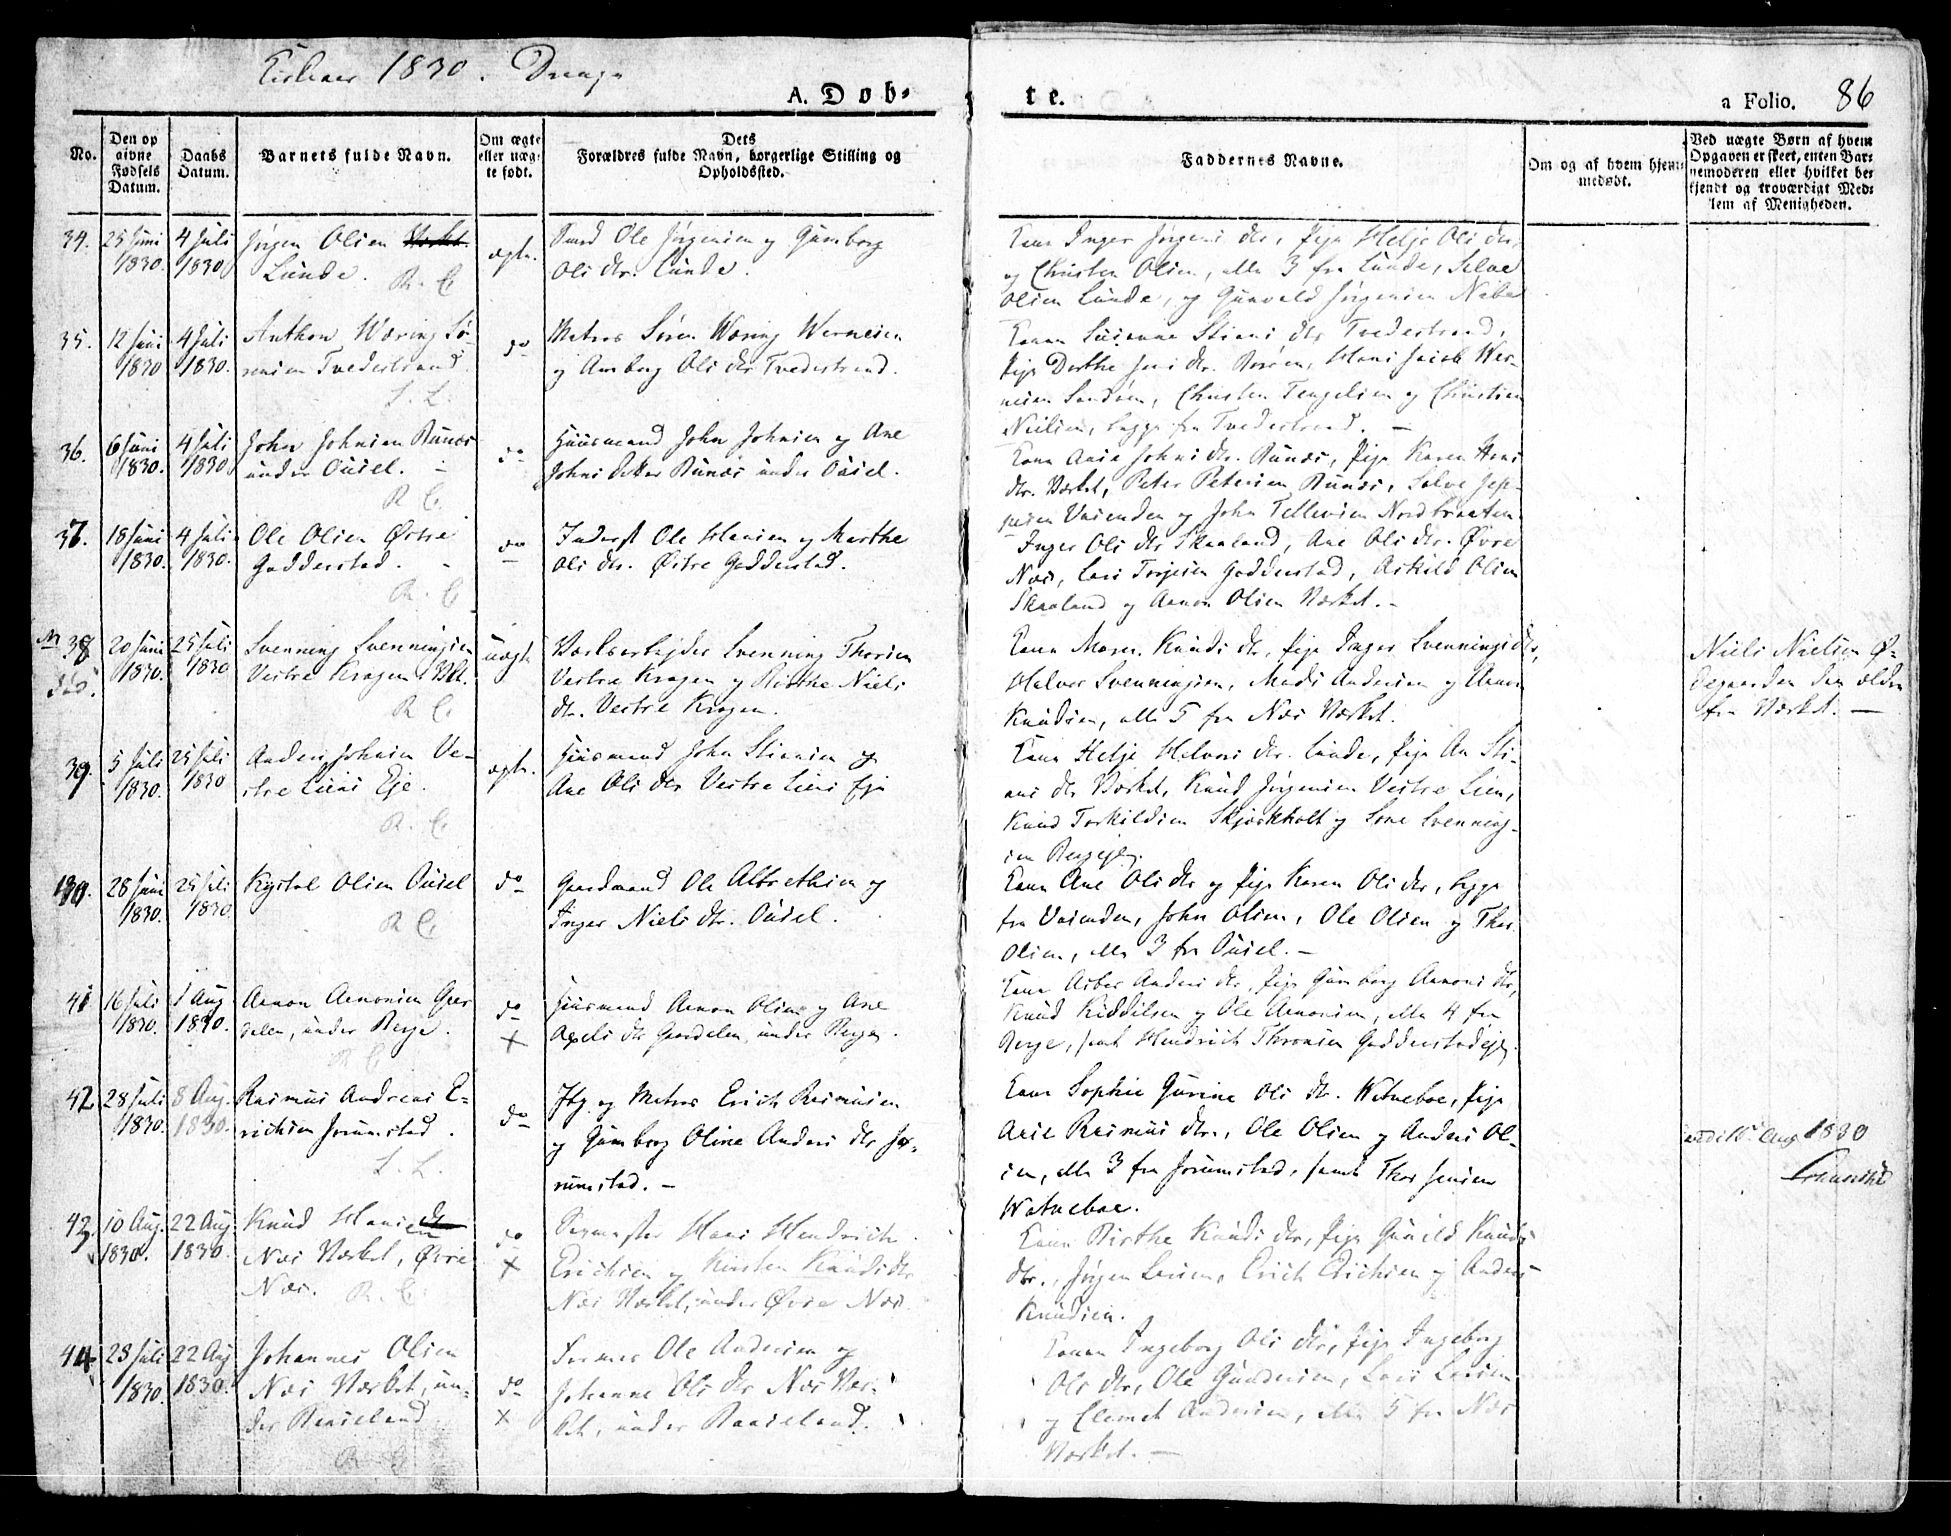 Kirkeaar 1830.
A. Døb-
te.
a Folio. 86
No.
Den op
givne
Fødsels
Datum.
Daabs
Datum.
Barnets fulde Navn.
Om ægte
eller uæg-
te født.
Dets
Forældres fulde Navn, borgerlige Stilling og
Opholdssted.
Faddernes Navne.
Om og af hvem hjem-
medøbt.
Ved uægte Børn af hvem
Opgaven er skeet, enten Bar-
nemoderen eller hvilket be-
kjendt og troværdigt Med-
lem af Menigheden.
34. 25 Juni 1830 4 Juli 1830
Jørgen Olsen
Lunde. R. C.
ægte.
Ole Jørgensen og Gunborg
Olsdtr. Lunde.
Inger Jørgensdtr, Pige Helje Olsdtr,
og Christen Olsen, alle 3 fra Lunde, Selve
Olsen Lunde, og Gunvald Jørgensen
35. 12 Juni 1830 4 Juli 1830.
Anthon Wæring Sø-
rensen Tvedestrand.
do
Matros Søren Wæring Wernesen
og Anborg Olsdtr Tvedestrand.
Kone Susanne Stiansdtr Tvedestrand,
Pige Dorthe Jensdtr. Hans Jacob Wer-
nesen Christen Tengelsen og Christian
Nielsen, begge fra Tvedestrand.
36. 6 Juni 1830. 4 Juli 1830
John Johnsen Bunæs
under Ousel.
R C.
do
Huusmand John Johnsen og Ane
Johnsdatter Bunæs under Ousel.
Kone Anne Johnsdtr. Bunæs, Pige Karen Hans
dtr. Værket, Peter Petersen Bunæs, Salve Jep-
pesen Uasenden og John Tellevsen Nordbraaten.
37. 18 Juni 1830. 4 Juli 1830.
Ole Olsen Østre
Godderstad.
R. C.
do
Inderst Ole Hansen og Marthe
Olsdtr. Østre Godderstad.
Inger Olsdtr Skaaland, Ane Olsdtr. Øvre
Næs, Lars Torjesen Godderstad, Askild Olsen
Skaaland og Aanon Olsen Værket.
38 20 Juni 1830. 25 Juli 1830
Svenning Svenningsen
Vestre Kragen
R C.
uægte
Værksarbejder Svenning Thorsen
Vestre Kragen og Birthe Niels
dtr. Vestre Kragen.
Kone Maren Knudsdtr, Pige Inger Svenningsdtr,
Halvor Svenningsen, Mads Andersen og Aanon
Knudsen, alle 5 fra Næs Værket.
Niels Nielsen Ø-
degaarden den ældre
fra Værket.
39. 5 Juli 1830. 25 Juli 1830
Anders Johnsen Ve-
stre Liens Eje.
R. C.
ægte.
Huusmand John Stiansen og
Ane Olsdtr Vestre Liens Eje
Kone Helje Halvorsdtr. Lunde, Pige An Sti-
ansdtr Værket, Knud Jørgensen Vestre Lien,
Knud Torkildsen Skjærkholt og Svenning-
sen
28 Juni 1830. 25 Juli 1830.
Kystol Olsen Ousel
R C.
do
Gaardmand Ole Albrethsen og
Inger Nielsdtr. Ousel.
Kone Ane Olsdtr og Pige Karen Olsdtr, begge
fra Uasenden, John Olsen, Ole Olsen og Thor
Olsen, alle 3 fra Ousel.
41 16 Juli 1830. 1 Aug 1830.
Aanon Aanonsen Gaas
dalen, under Berge.
R C
do
×
Huusmand Aanon Olsen og Ane
Axelsdtr Gaasdalen under Berge.
Kone Asber Andersdtr, Pige Gunborg Aanonsdtr,
Knud Kiddilsen og Ole Aanonsen, alle 4 fra
Berge, samt Hendrich Thronsen Godderstadeje.
42 28 Juli 1830. 8 Aug. 1830.
Rasmus Andreas E-
richsen Jorumstad.
do
og Matros Erich Rasmusen
og Gunborg Oline Andersdtr Jo-
rumstad.
Kone Sophie Gurine Olsdtr. Watneboe, Pige
Asie Rasmusdtr., Ole Olsen og Anders Ol-
sen, alle 3 fra Jorumstad, samt Thor Jensen
Watneboe.
Aug 1830
43. 10 Aug. 1830. 22 Aug 1830.
Knud Hansen
Næs Værket, Øvre
Næs. R. C.
do
×
Hans Hendrich
Erichsen og Kirsten Knudsdtr
Næs Værket, under Øvre Næs.
Kone Birthe Knudsdtr, Pige Gunild Knuds
dtr., Jørgen Larsen, Erich Erichsen og Anders
Knudsen.
44 28 Juli 1830. 22 Aug 1830.
Johannes Olsen
Næs Værket, un-
der Baaseland
R C
do
×
Former Ole Andersen og
Johanne Olsdtr Næs Vær-
ket, under Baaseland.
Konen Ingeborg Olsdtr, Pige Ingeborg
Olsdtr, Ole Gundersen, Lars Larsen
og Clemet Andersen, alle 5 fra Næs
Værket.